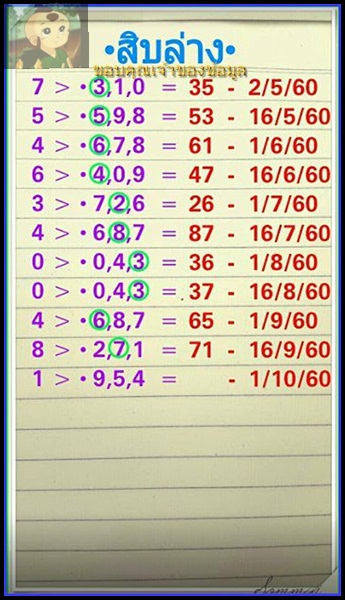 •สิบล่าง•
ขอบคุณเจ้าของข้อมูล
7 > •3,1,0 = 35 - 2/5/60
5 > •5,9,8 = 53 - 16/5/60
4 > •6,7,8 = 61 - 1/6/60
6 > •4,0,9 = 47 - 16/6/60
3 > •7,2,6 = 26 - 1/7/60
4 > •6,8,7 = 87 - 16/7/60
0 > •0,4,3 = 36 - 1/8/60
0 > •0,4,3 = .37 - 16/8/60
4 > •6,8,7 = 65 - 1/9/60
8 > •2,7,1 = 71 - 16/9/60
1 > •9,5,4 = - 1/10/60